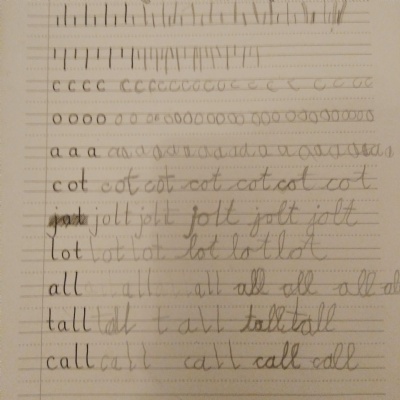 c c c c c c c c c c c c c c c c c c c
o o o o o o o o o o o o o o o o o o o o o o
a a a a a a a a a a a a a a a a a a
cot cot cot cot cot cot cot
jolt jolt jolt jolt jolt
lot lot lot lot lot lot
all all all all all all al
tall tall tall tall tall
call call call call call